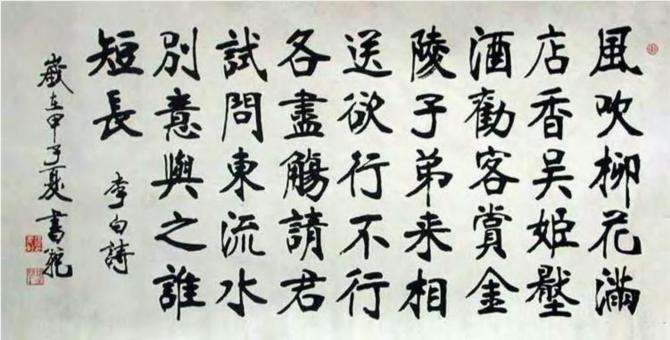 風吹柳花滿
店香吳姬壓
酒勸客賞金
陵子弟来相
送欲行不行
各盡觴請君
試問東流水
別意與之誰
短長
李白詩
歲在甲子夏書